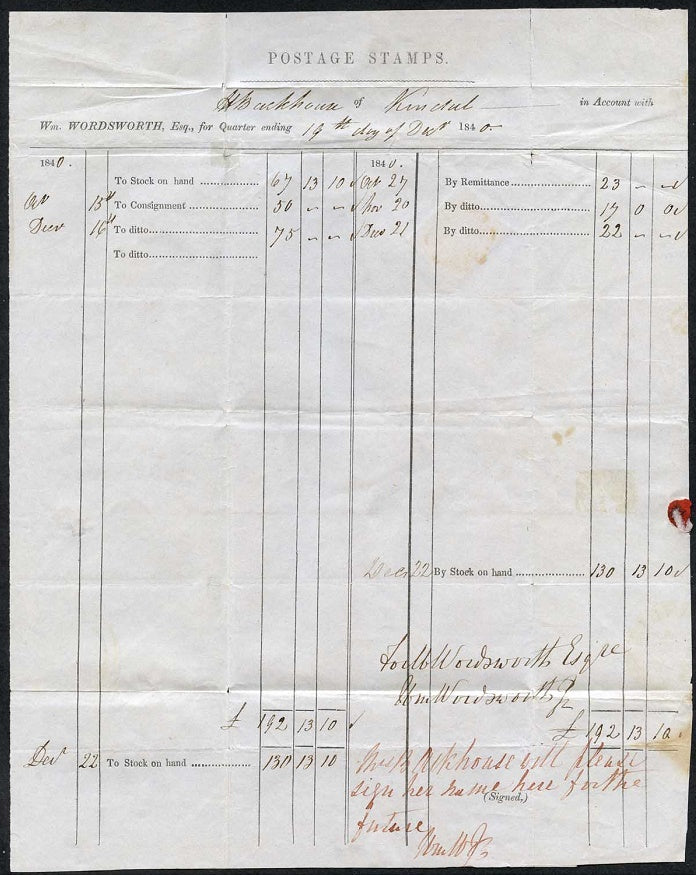 POSTAGE STAMPS.
H Backhouse of Kendal in Account with
Wm. WORDSWORTH, Esq., for Quarter ending 19th day of Decr 1840.
1840. 1840.
To Stock on hand 67 13 10 Oct 27 By Remittance 23 - -
Oct 15th To Consignment 50 - - Nov 20 By ditto 17 0 0
Decr 16th To ditto 75 - - Dec 21 By ditto 22 - -
To ditto
Dec 22 By Stock on hand 130 13 10
For Wm Wordsworth Esqre
Wm Wordsworth Jr
£ 192 13 10 £ 192 13 10
Decr 22 To Stock on hand 130 13 10
Miss Backhouse will please
sign her name here for the
(Signed,)
future
Wm W Jr